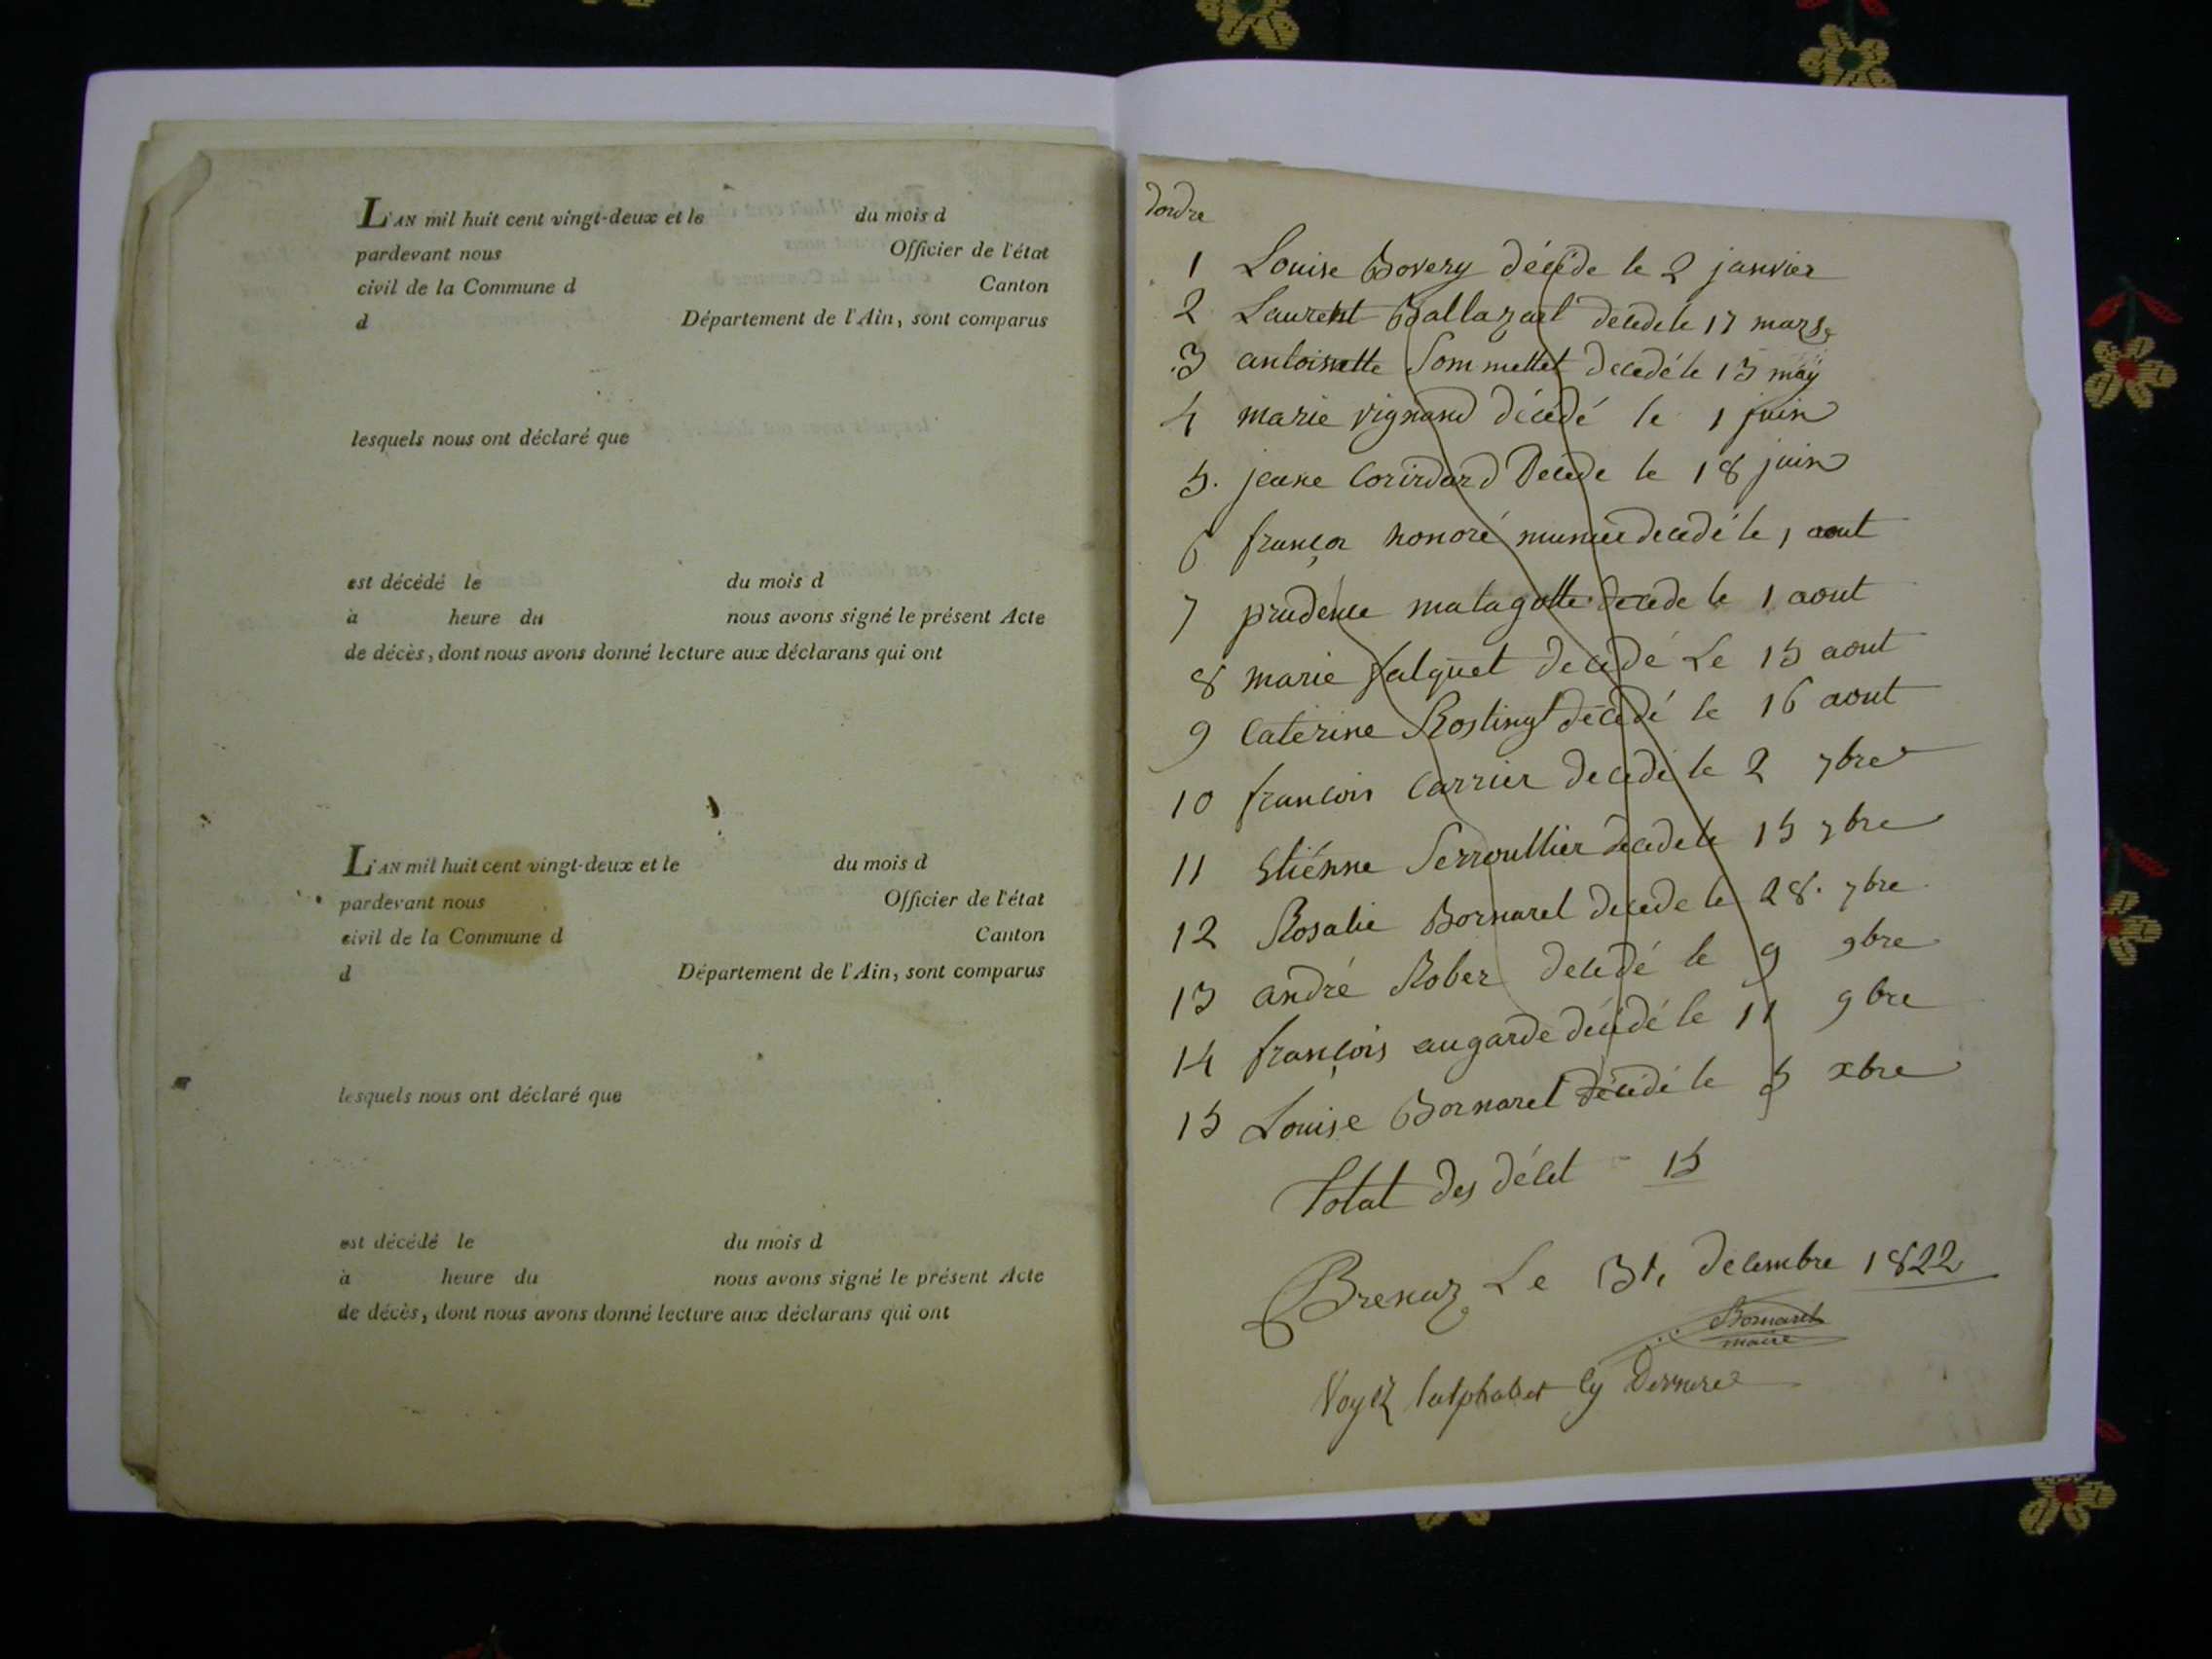 L'AN mil huit cent vingt-deux et le du mois d
pardevant nous Officier de l'état
civil de la Commune d Canton
d Département de l'Ain, sont comparus
lesquels nous ont déclaré que
est décédé le du mois d
à heure du nous avons signé le présent Acte
de décès, dont nous avons donné lecture aux déclarans qui ont
L'AN mil huit cent vingt-deux et le du mois d
pardevant nous Officier de l'état
civil de la Commune d Canton
d Département de l'Ain, sont comparus
lesquels nous ont déclaré que
est décédé le du mois d
à heure du nous avons signé le présent Acte
de décès, dont nous avons donné lecture aux déclarans qui ont
dordre
1 Louise Bovery décéde le 2 janvier
2 Laurent Ballazart decede le 17 mars
3 antoinette Sommettet decedé le 15 may
4 marie vignand décédé le 1 juin
5. jeane Decede le 18 juin
6 honoré munier decedé le 1 aout
7 prudence matagotte decede le 1 aout
8 marie falquet decedé Le 15 aout
9 Caterine Rostingt décedé le 16 aout
10 francois Carrier decede le 2 7bre
11 Etiénne Serroullier decede le 15 7bre
12 Rosalie Bornarel decede le 28. 7bre
13 andré Rober decedé le 9 9bre
14 françois augarde décédé le 11 9bre
15 Louise Bornarel décédé le 5 xbre
Total des décet - 15
Brenaz Le 31, decembre 1822
Bornarel
maire
Voyez lalphabet cy